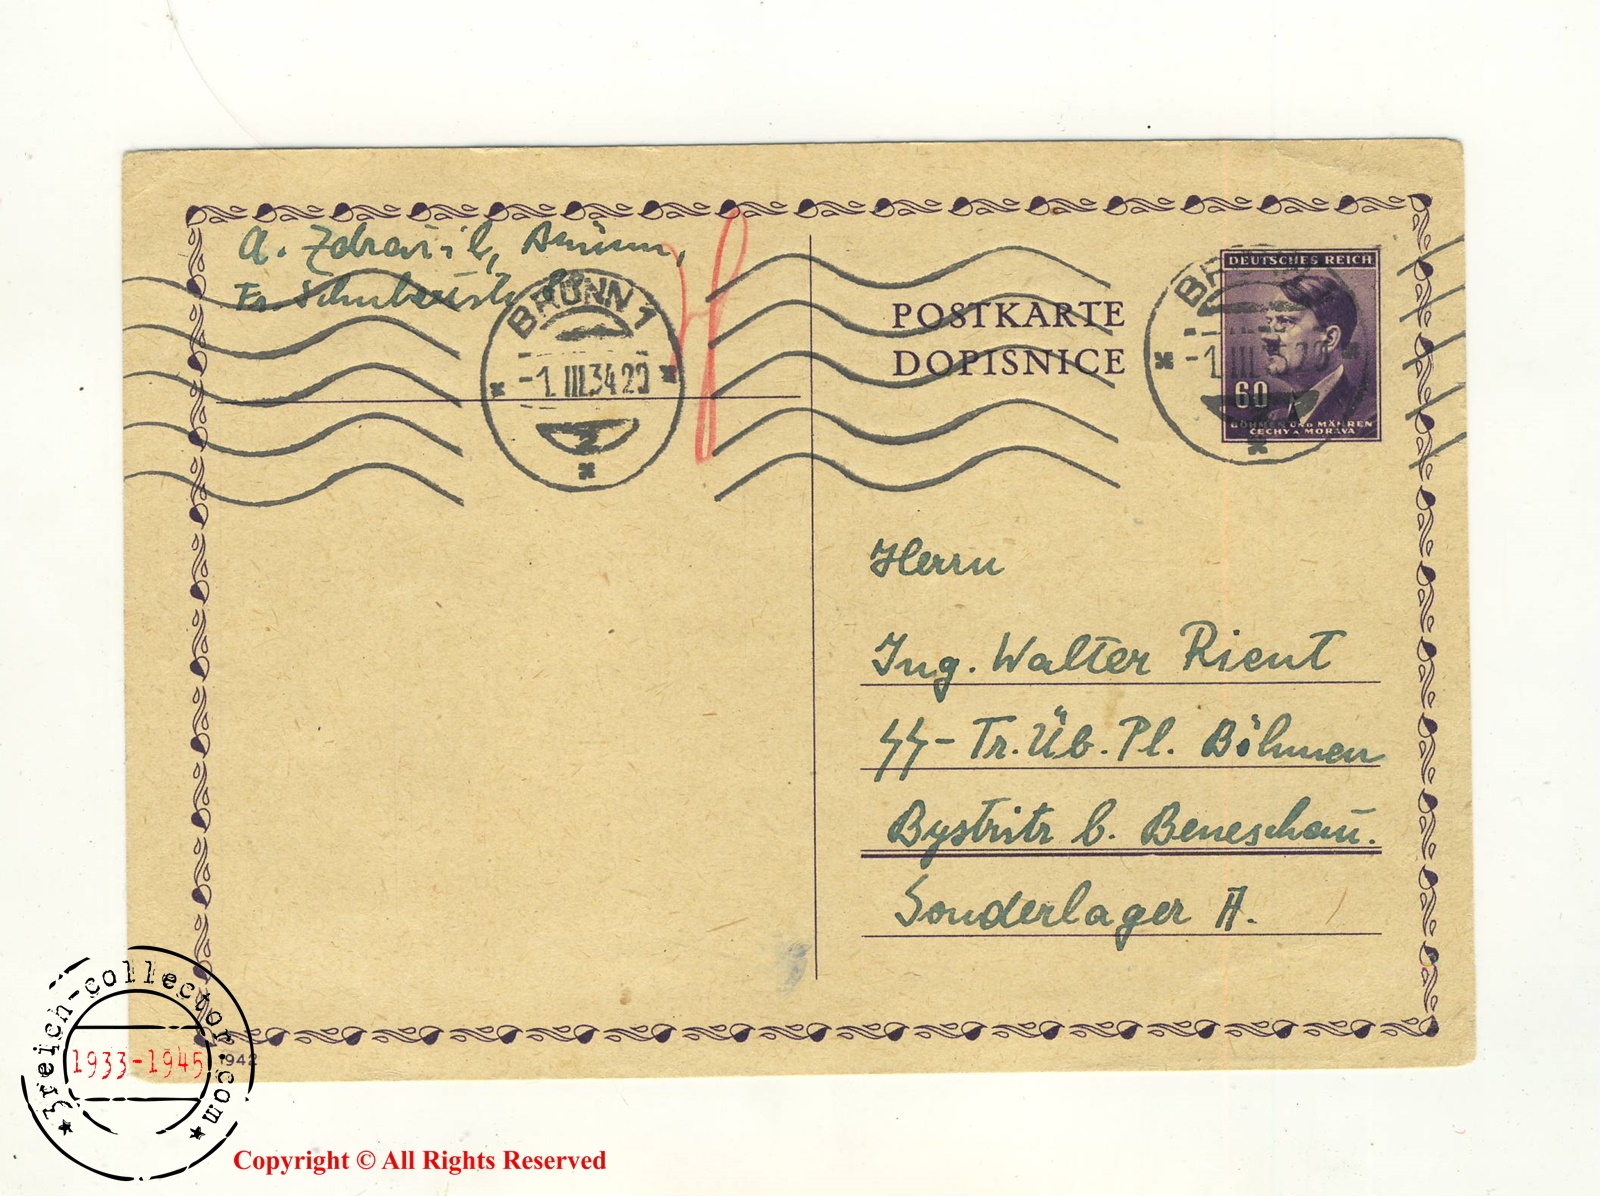 A. Zdražil, Brünn,
BRÜNN 1
-1.III.34 20
2
POSTKARTE
DOPISNICE
DEUTSCHES REICH
60
BÖHMEN UND MÄHREN
ČECHY A MORAVA
-1.III
Herrn
Ing. Walter Rient
SS- Tr. Üb. Pl. Böhmen
Bystritz b. Beneschau.
Sonderlager A.
1942
3reich-collector.com
1933-1945
Copyright © All Rights Reserved